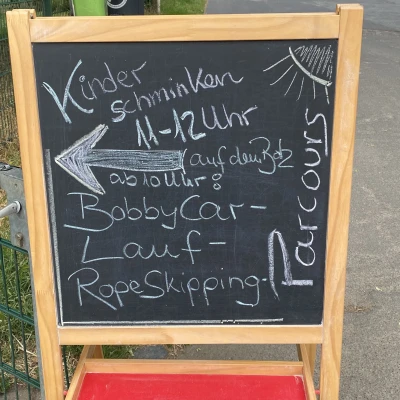 Kinder
schminken
11-12 Uhr
auf dem Platz
ab 10 Uhr:
BobbyCar-
Lauf-
RopeSkipping-
Parcours